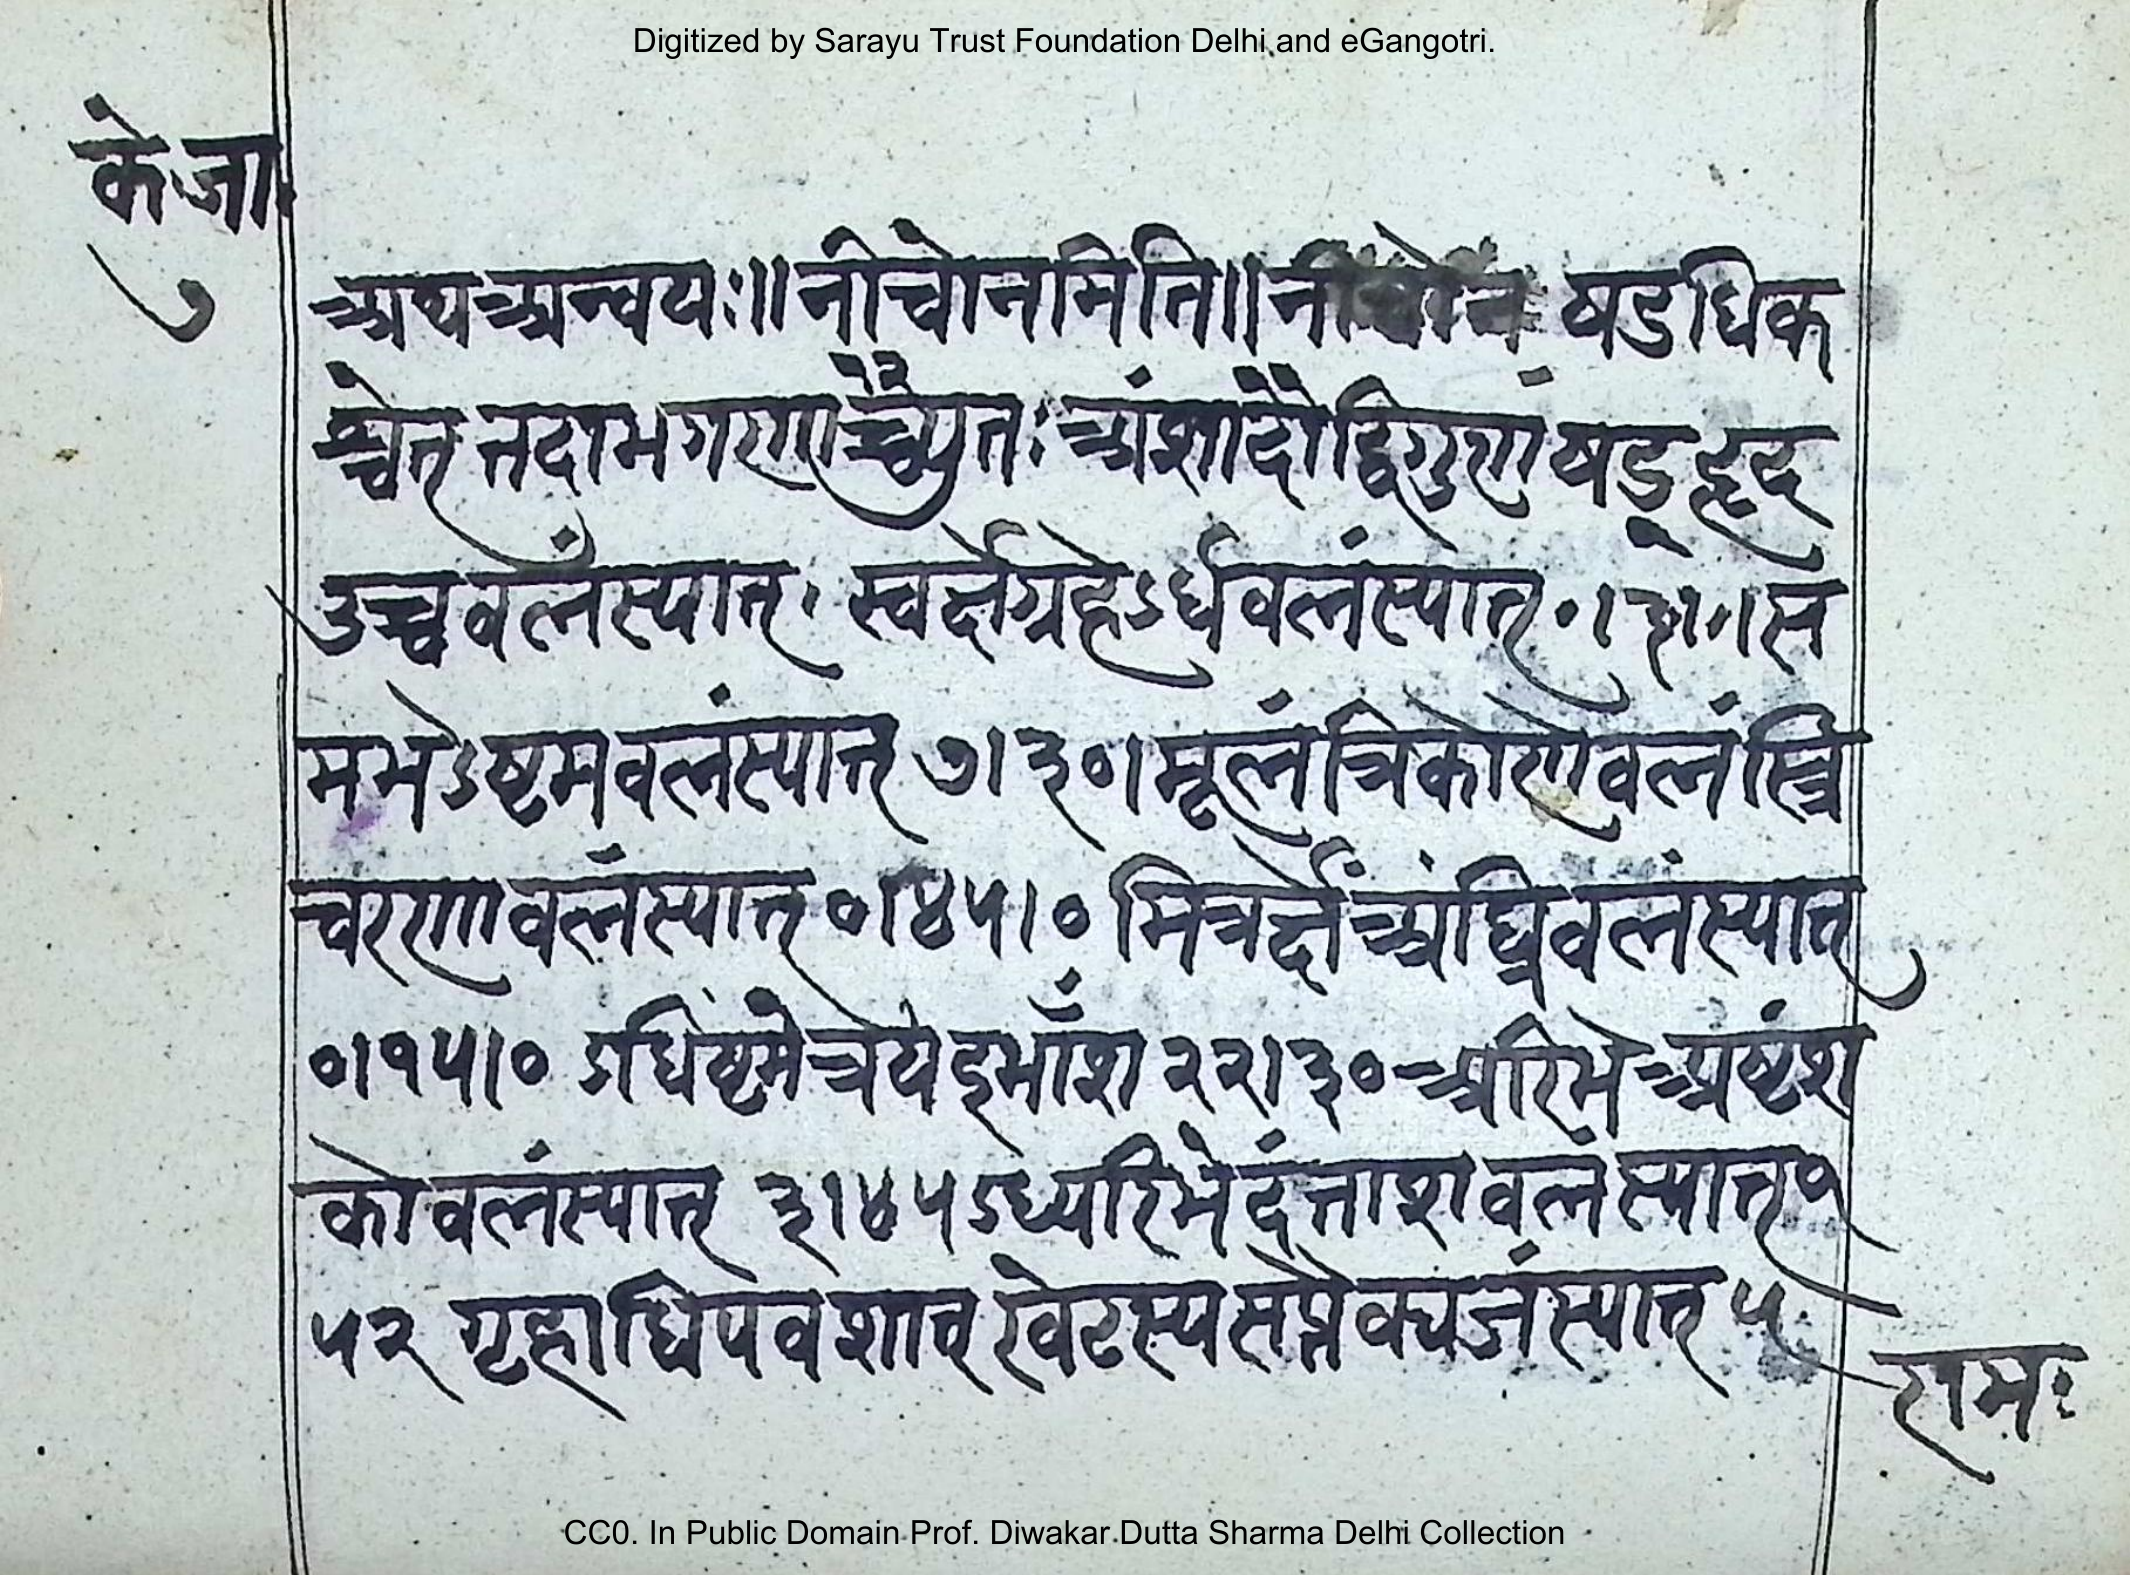 Digitized by Sarayu Trust Foundation Delhi and eGangotri.
के॰जा॰
७
अथ अन्वयः॥ नीचोनमिति॥ नीचोनं षडधिक
श्चेत् तदा भगणाच्च्युतः अंशादौ द्विगुण षड् हृद
उच्चवलंस्यात्॰ स्वर्क्षग्रहेऽर्धवलंस्यात् ०।३०।०। स
मभेऽष्टमवलंस्यात् ७।३०। मूलंत्रिकोणवलं स्त्रि
चरणवलंस्यात् ०।४५।० मित्रर्क्षे अंघ्रिवलंस्यात्
०।१५।० ऽधिष्टमेत्रये इभांश २२।३० अरिभे अष्टंश
को वलंस्यात् ३।४५ ऽध्यरिभे दंताशवलं स्यात् १
५२ गृहाधिपवशात् खेटस्य सप्तैक्यजंस्यात् ५
रामः
CC0. In Public Domain Prof. Diwakar Dutta Sharma Delhi Collection